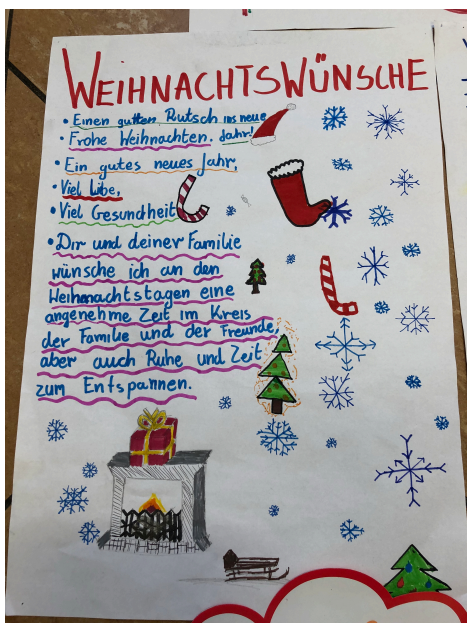 WEIHNACHTSWÜNSCHE
• Einen gutten Rutsch ins neue
Jahr!
• Frohe Weihnachten.
• Ein gutes neues Jahr,
• Viel Libe,
• Viel Gesundheit
• Dir und deiner Familie
wünsche ich an den
Weihnachtstagen eine
angenehme Zeit im Kreis
der Familie und der Freunde,
aber auch Ruhe und Zeit
zum Entspannen.